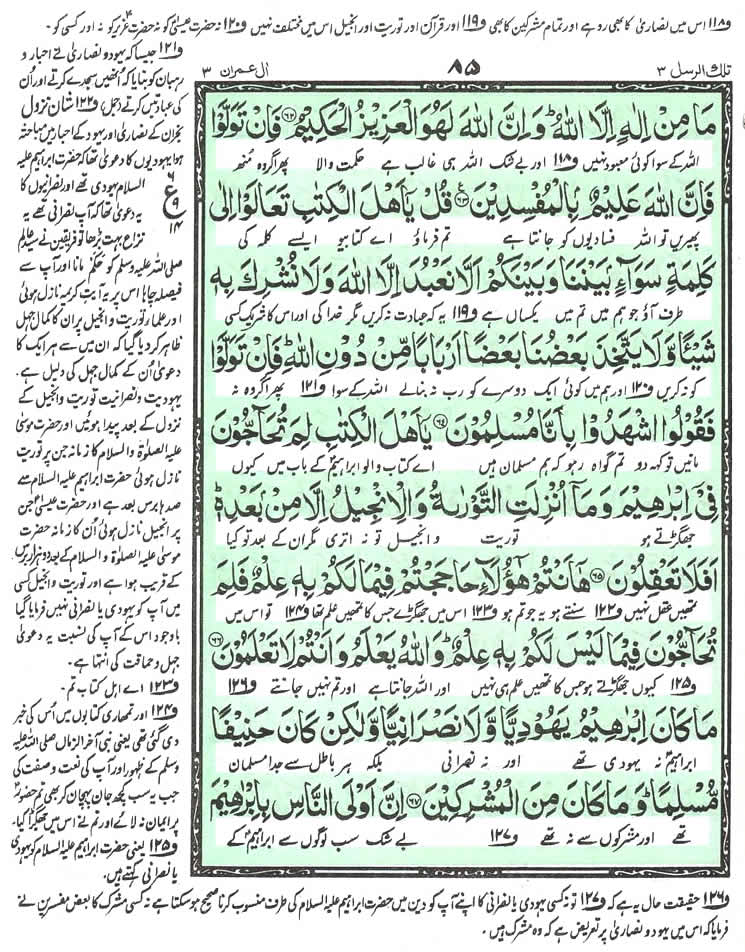 و۱۱۸ اس میں نصاریٰ کا بھی رد ہے اور تمام مشرکین کا بھی و۱۱۹ اور قرآن اور توریت اور انجیل اس میں مختلف نہیں و۱۲۰ نہ حضرت عیسیٰ کو نہ حضرت عزیر کو نہ اور کسی کو۔
تلك الرسل ۳
۸۵
ال عمران ۳
مَا مِنْ اِلٰهٍ اِلَّا اللّٰهُ ؕ وَ اِنَّ اللّٰهَ لَهُوَ الْعَزِیْزُ الْحَكِیْمُ ۝۶۲ فَاِنْ تَوَلَّوْا
اللہ کے سوا کوئی معبود نہیں و۱۱۸ اور بے شک اللہ ہی غالب ہے حکمت والا پھر اگر وہ منھ
فَاِنَّ اللّٰهَ عَلِیْمٌۢ بِالْمُفْسِدِیْنَ ۝۶۳ قُلْ یٰۤاَهْلَ الْكِتٰبِ تَعَالَوْا اِلٰی
پھیریں تو اللہ فسادیوں کو جانتا ہے تم فرماؤ اے کتابیو ایسے کلمہ کی
كَلِمَةٍ سَوَآءٍۭ بَیْنَنَا وَ بَیْنَكُمْ اَلَّا نَعْبُدَ اِلَّا اللّٰهَ وَ لَا نُشْرِكَ بِهٖ
طرف آؤ جو ہم میں تم میں یکساں ہے و۱۱۹ یہ کہ عبادت نہ کریں مگر خدا کی اور اس کا شریک کسی
شَیْـًٔا وَّ لَا یَتَّخِذَ بَعْضُنَا بَعْضًا اَرْبَابًا مِّنْ دُوْنِ اللّٰهِ ؕ فَاِنْ تَوَلَّوْا
کو نہ کریں و۱۲۰ اور ہم میں کوئی ایک دوسرے کو رب نہ بنالے اللہ کے سوا و۱۲۱ پھر اگر وہ نہ
فَقُوْلُوا اشْهَدُوْا بِاَنَّا مُسْلِمُوْنَ ۝۶۴ یٰۤاَهْلَ الْكِتٰبِ لِمَ تُحَآجُّوْنَ
مانیں تو کہہ دو تم گواہ رہو کہ ہم مسلمان ہیں اے کتاب والو ابراہیم کے باب میں کیوں
فِیْۤ اِبْرٰهِیْمَ وَ مَاۤ اُنْزِلَتِ التَّوْرٰىةُ وَ الْاِنْجِیْلُ اِلَّا مِنْۢ بَعْدِهٖ ؕ
جھگڑتے ہو توریت و انجیل تو نہ اتری مگر ان کے بعد تو کیا
اَفَلَا تَعْقِلُوْنَ ۝۶۵ هٰۤاَنْتُمْ هٰۤؤُلَآءِ حَاجَجْتُمْ فِیْمَا لَكُمْ بِهٖ عِلْمٌ فَلِمَ
تمھیں عقل نہیں و۱۲۲ سنتے ہو یہ جو تم ہو و۱۲۳ اس میں جھگڑے جس کا تمھیں علم تھا و۱۲۴ تو اس میں
تُحَآجُّوْنَ فِیْمَا لَیْسَ لَكُمْ بِهٖ عِلْمٌ ؕ وَ اللّٰهُ یَعْلَمُ وَ اَنْتُمْ لَا تَعْلَمُوْنَ ۝۶۶
و۱۲۵ کیوں جھگڑتے ہو جس کا تمھیں علم ہی نہیں اور اللہ جانتا ہے اور تم نہیں جانتے و۱۲۶
مَا كَانَ اِبْرٰهِیْمُ یَهُوْدِیًّا وَّ لَا نَصْرَانِیًّا وَّ لٰكِنْ كَانَ حَنِیْفًا
ابراہیم نہ یہودی تھے اور نہ نصرانی بلکہ ہر باطل سے جدا مسلمان
مُّسْلِمًا ؕ وَ مَا كَانَ مِنَ الْمُشْرِكِیْنَ ۝۶۷ اِنَّ اَوْلَی النَّاسِ بِاِبْرٰهِیْمَ
تھے اور مشرکوں سے نہ تھے و۱۲۷ بے شک سب لوگوں سے ابراہیم کے
و۱۲۱ جیسا کہ یہود و نصاریٰ نے احبار و
رہبان کو بنایا کہ انھیں سجدے کرتے اور اُن
کی عبادتیں کرتے (جمل) و۱۲۲ شان نزول
نجران کے نصاریٰ اور یہود کے احبار میں مباحثہ
ہوا یہودیوں کا دعویٰ تھا کہ حضرت ابراہیم علیہ
السلام یہودی تھے اور نصرانیوں کا
یہ دعویٰ تھا کہ آپ نصرانی تھے یہ
نزاع بہت بڑھا تو فریقین نے سید عالم
صلی اللہ علیہ وسلم کو حکم مانا اور آپ سے
فیصلہ چاہا اس پر یہ آیت کریمہ نازل ہوئی
اور علمار توریت و انجیل پر ان کا کمال جہل
ظاہر کر دیا گیا کہ ان میں سے ہر ایک کا
دعویٰ اُن کے کمال جہل کی دلیل ہے۔
یہودیت و نصرانیت توریت و انجیل کے
نزول کے بعد پیدا ہوئیں اور حضرت موسیٰ
علیہ الصلوٰۃ والسلام کا زمانہ جن پر توریت
نازل ہوئی حضرت ابراہیم علیہ السلام سے
صدہا برس بعد ہے اور حضرت عیسیٰ جن
پر انجیل نازل ہوئی اُن کا زمانہ حضرت
موسیٰ علیہ الصلوٰۃ والسلام کے بعد دو ہزار برس
کے قریب ہوا ہے اور توریت و انجیل کسی
میں آپ کو یہودی یا نصرانی نہیں فرمایا گیا
باوجود اس کے آپ کی نسبت یہ دعویٰ
جہل و حماقت کی انتہا ہے۔
و۱۲۳ اے اہل کتاب تم۔
و۱۲۴ اور تمھاری کتابوں میں اُس کی خبر
دی گئی تھی یعنی نبی آخر الزماں صلی اللہ علیہ
وسلم کے ظہور اور آپ کی نعت و صفت کی
جب یہ سب کچھ جان پہچان کر بھی تم حضور
پر ایمان نہ لائے اور تم نے اس میں جھگڑا کیا۔
و۱۲۵ یعنی حضرت ابراہیم علیہ السلام کو یہودی
یا نصرانی کہتے ہیں۔
۶
ع
۹
۱۴
و۱۲۶ حقیقت حال یہ ہے کہ و۱۲۷ تو نہ کسی یہودی یا نصرانی کا اپنے آپ کو دین میں حضرت ابراہیم علیہ السلام کی طرف منسوب کرنا صحیح ہو سکتا ہے نہ کسی مشرک کا بعض مفسرین نے
فرمایا کہ اس میں یہود و نصاریٰ پر تعریض ہے کہ وہ مشرک ہیں۔